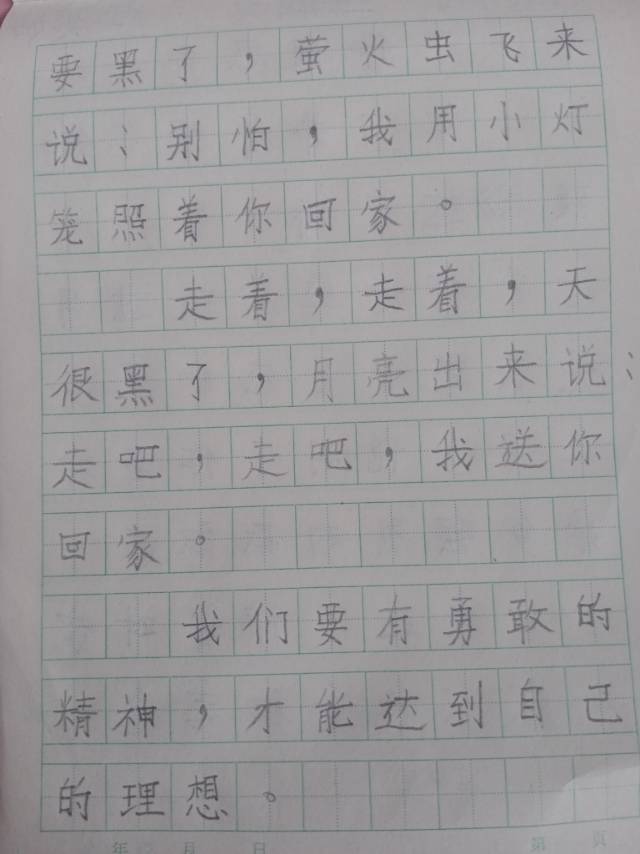 要黑了，萤火虫飞来
说：别怕，我用小灯
笼照着你回家。
走着，走着，天
很黑了，月亮出来说：
走吧，走吧，我送你
回家。
我们要有勇敢的
精神，才能达到自己
的理想。
年 月 日 第 页